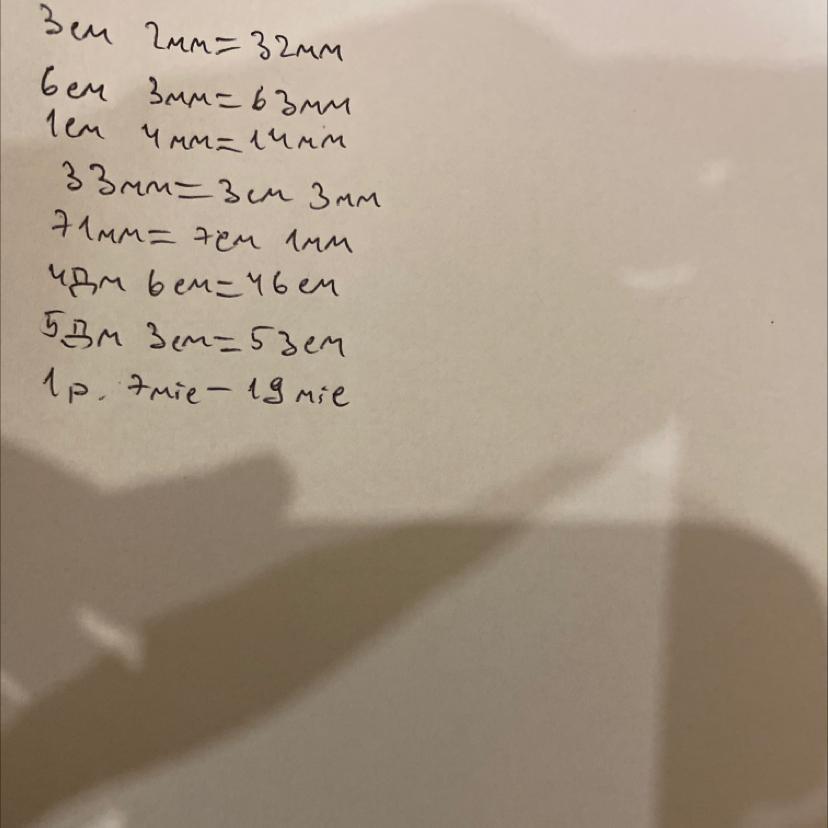 3см 2мм=32мм
6см 3мм=63мм
1см 4мм=14мм
33мм=3см 3мм
71мм=7см 1мм
4Дм 6см=46см
5Дм 3см=53см
1р. 7міс-19міс